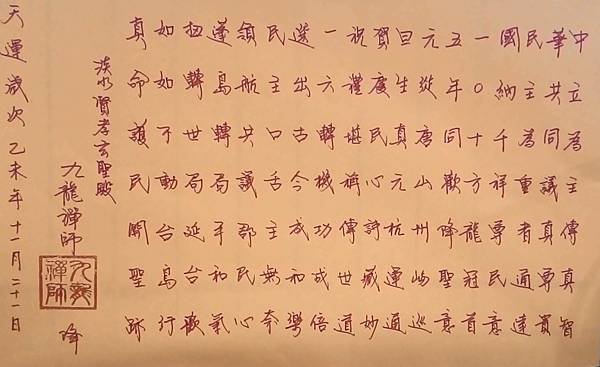 中立為主傳真智
華共同議真尊貫
民主為重者通達
國納千祥尊民意
一〇十方龍冠首
五年同歡降聖意
元從唐山州嶼巡
旦生真元杭運通
賀度民心許藏妙
祝禮堪稱傳世道
一六轉機功成倍
選出古今成和樂
民主口舌主無奈
領航共議郡民心
蓬島轉局平和氣
扭轉世局延台歡
如如不動台島行
真命護民開聖跡
淡水賢孝玄聖殿
九龍禪師 降
九龍禪師
天運歲次乙未年十一月二十一日